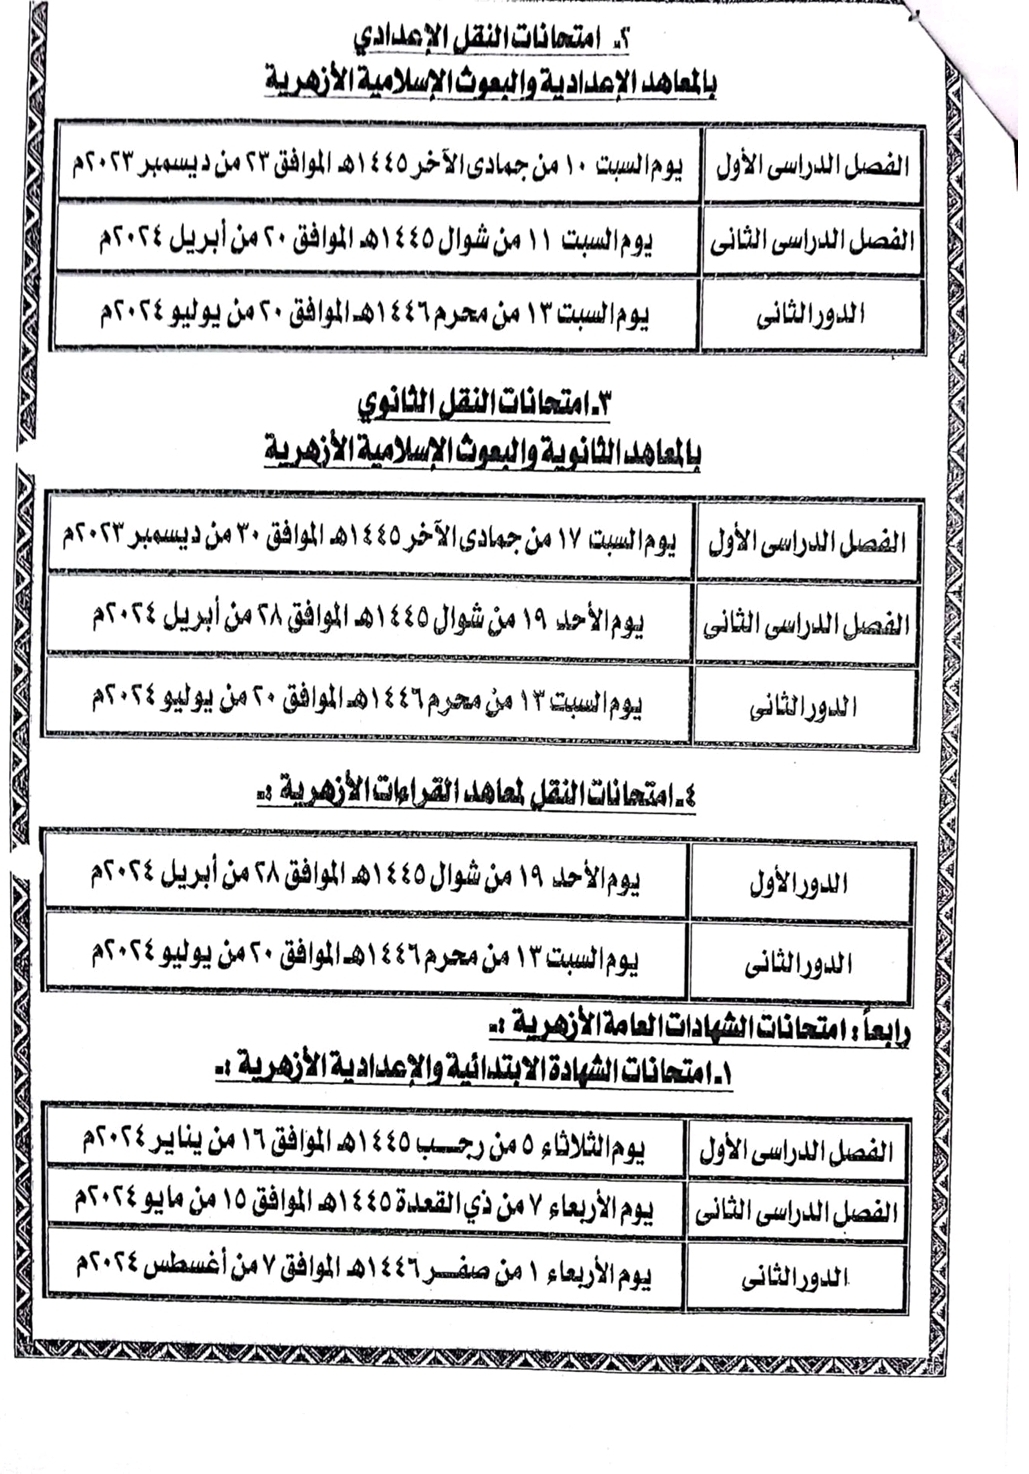 ٢ـ امتحانات النقل الإعدادي
بالمعاهد الإعدادية والبعوث الإسلامية الأزهرية
الفصل الدراسى الأول يوم السبت ١٠ من جمادى الآخر ١٤٤٥هـ الموافق ٢٣ من ديسمبر ٢٠٢٣م
الفصل الدراسى الثانى يوم السبت ١١ من شوال ١٤٤٥هـ الموافق ٢٠ من أبريل ٢٠٢٤م
الدور الثانى يوم السبت ١٣ من محرم ١٤٤٦هـ الموافق ٢٠ من يوليو ٢٠٢٤م
٣ـ امتحانات النقل الثانوي
بالمعاهد الثانوية والبعوث الإسلامية الأزهرية
الفصل الدراسى الأول يوم السبت ١٧ من جمادى الآخر ١٤٤٥هـ الموافق ٣٠ من ديسمبر ٢٠٢٣م
الفصل الدراسى الثانى يوم الأحد ١٩ من شوال ١٤٤٥هـ الموافق ٢٨ من أبريل ٢٠٢٤م
الدور الثانى يوم السبت ١٣ من محرم ١٤٤٦هـ الموافق ٢٠ من يوليو ٢٠٢٤م
٤ـ امتحانات النقل لمعاهد القراءات الأزهرية :ـ
الدور الأول يوم الأحد ١٩ من شوال ١٤٤٥هـ الموافق ٢٨ من أبريل ٢٠٢٤م
الدور الثانى يوم السبت ١٣ من محرم ١٤٤٦هـ الموافق ٢٠ من يوليو ٢٠٢٤م
رابعاً : امتحانات الشهادات العامة الأزهرية :ـ
١ـ امتحانات الشهادة الابتدائية والإعدادية الأزهرية :ـ
الفصل الدراسى الأول يوم الثلاثاء ٥ من رجـــب ١٤٤٥هـ الموافق ١٦ من يناير ٢٠٢٤م
الفصل الدراسى الثانى يوم الأربعاء ٧ من ذي القعدة ١٤٤٥هـ الموافق ١٥ من مايو ٢٠٢٤م
الدور الثانى يوم الأربعاء ١ من صفـــر ١٤٤٦هـ الموافق ٧ من أغسطس ٢٠٢٤م